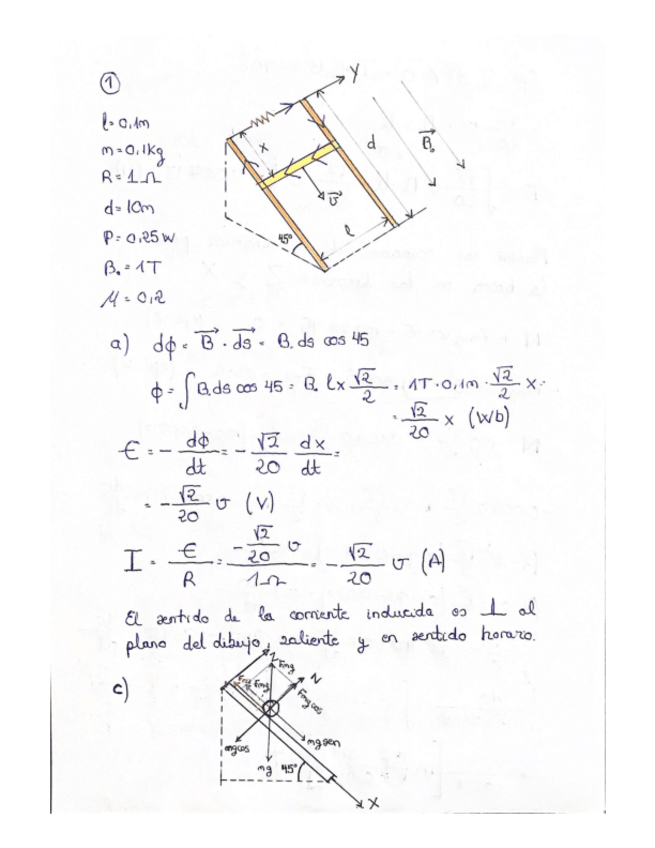 ①
Y
l = 0,1m
m = 0,1kg
R = 1 Ω
d = 10m
P = 0,25 W
B₀ = 1T
μ = 0,2
x
d
B₀
v
45º
l
a) dϕ = B · ds = B. ds cos 45
ϕ = ∫ B. ds cos 45 = B. l x √2/2 = 1T · 0,1m · √2/2 x =
= √2/20 x (Wb)
ε = - dϕ/dt = - √2/20 dx/dt =
= - √2/20 v (V)
I = ε/R = (- √2/20 v)/1Ω = - √2/20 v (A)
El sentido de la corriente inducida es ⊥ al
plano del dibujo, saliente y en sentido horario.
c)
Z
Fmg
N
Fmg cos
mg sen
mg cos
mg
45º
X